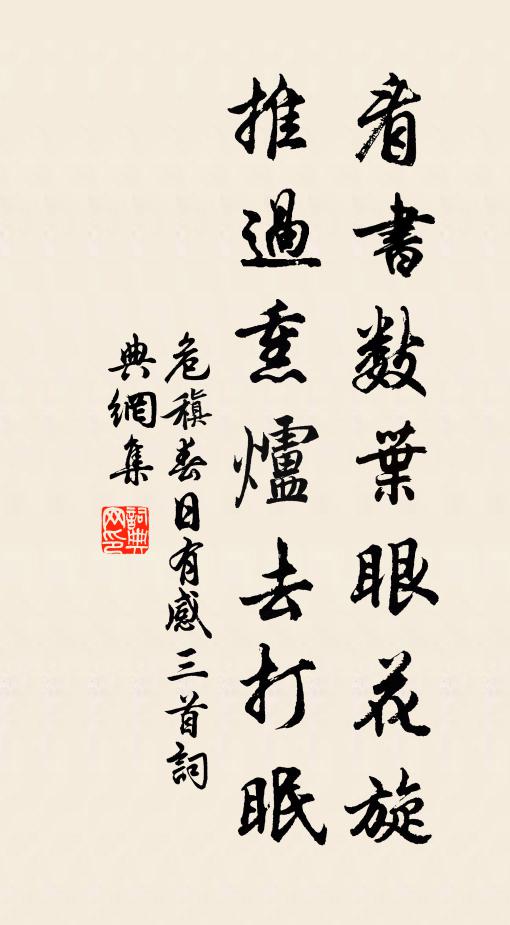 看書數葉眼花旋
推過熏爐去打眠
危稹春日有感三首詞
典網集
詞典网印